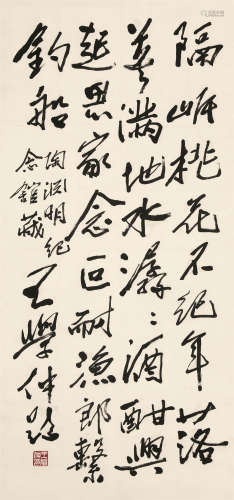 隔岸桃花不紀年落
英滿地水潺〻酒酣興
起思家念叵耐漁郎繫
釣船
陶淵明紀
念館藏
王學仲題